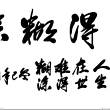 得糊
人生
在世
难得
糊涂